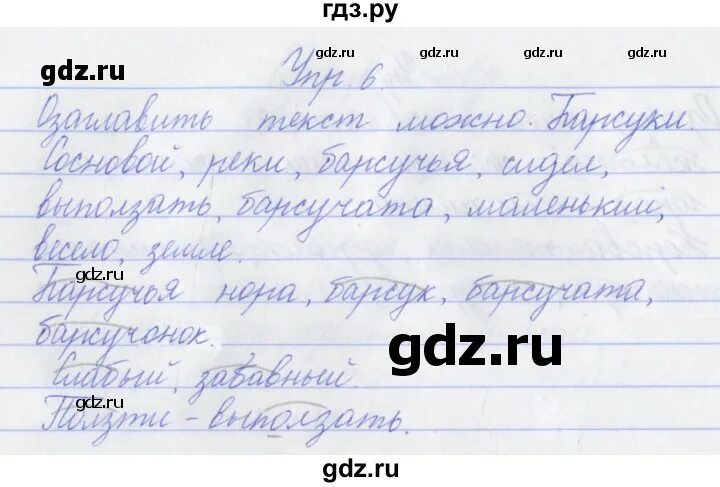 гдз.ру
gdz.ru
gdz.ru
gdz.ru
gdz.ru
Упр. 6.
Озаглавить текст можно. Барсуки.
Сосновой, реки, барсучья, сидел,
gdz.ru
gdz.ru
gdz.ru
выползать, барсучата, маленький,
весело, земле.
gdz.ru
Барсучья нора, барсук, барсучата,
gdz.ru
gdz.ru
барсучонок.
gdz.ru
Слабый, забавный.
gdz.ru
gdz.ru
gdz.ru
Ползти – выползать.
gdz.ru